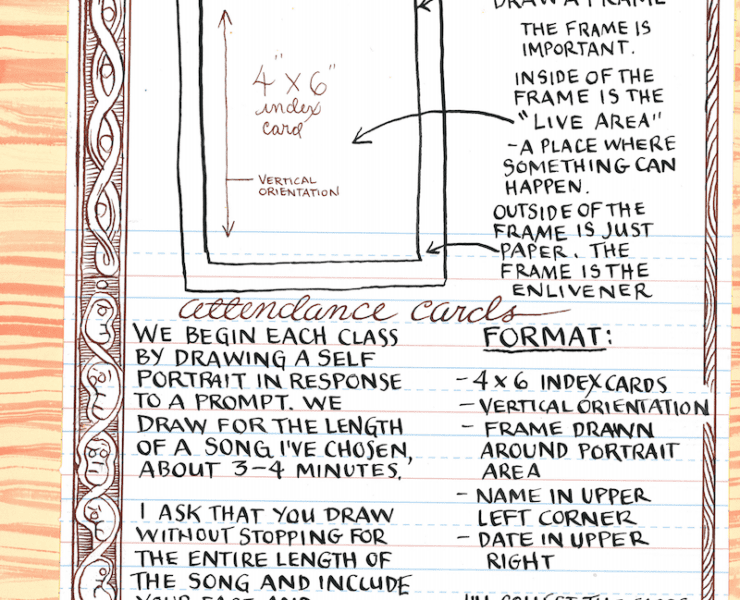 DRAW A FRAME
THE FRAME IS
IMPORTANT.
INSIDE OF THE
FRAME IS THE
"LIVE AREA"
-A PLACE WHERE
SOMETHING CAN
HAPPEN.
OUTSIDE OF THE
FRAME IS JUST
PAPER. THE
FRAME IS THE
ENLIVENER
4" X 6"
index
card
VERTICAL
ORIENTATION
attendance cards
WE BEGIN EACH CLASS
BY DRAWING A SELF
PORTRAIT IN RESPONSE
TO A PROMPT. WE
DRAW FOR THE LENGTH
OF A SONG I'VE CHOSEN,
ABOUT 3-4 MINUTES.
I ASK THAT YOU DRAW
WITHOUT STOPPING FOR
THE ENTIRE LENGTH OF
THE SONG AND INCLUDE
FORMAT:
- 4 X 6 INDEX CARDS
- VERTICAL ORIENTATION
- FRAME DRAWN
AROUND PORTRAIT
AREA
- NAME IN UPPER
LEFT CORNER
- DATE IN UPPER
RIGHT